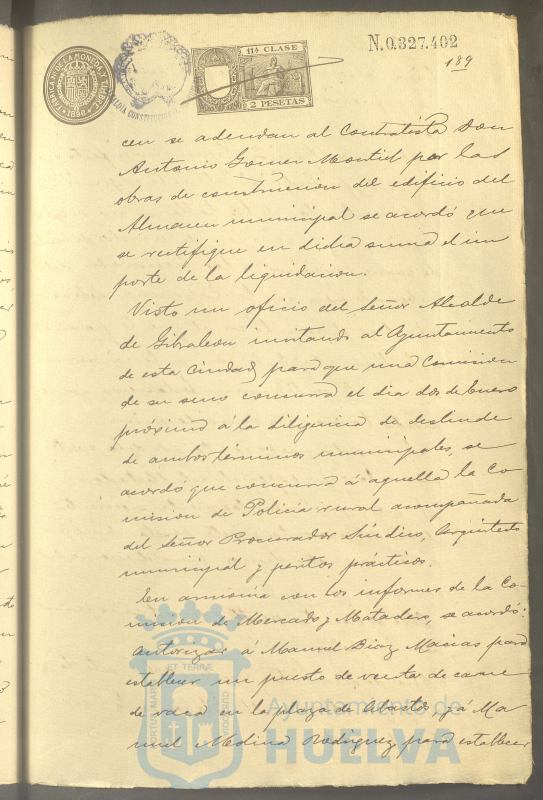 FABRICA NACIONAL DE LA MONEDA Y TIMBRE
1896
ALCALDIA CONSTITUCIONAL
11ª CLASE
2 PESETAS
N.0.327.402
189
cen se adeudan al Contratista Don
Antonio Gomez Montiel por las
obras de construccion del edificio del
Almacen municipal se acordó que
se rectifique en dicha suma el im
porte de la liquidacion.
Visto un oficio del Señor Alcalde
de Gibraleon invitando al Ayuntamiento
de esta Ciudad, para que una Comision
de su seno concurra el dia dos de Enero
próximo á la diligencia de deslinde
de ambos términos municipales, se
acordó que concurra á aquella la Co
mision de Policia rural acompañada
del Señor Procurador Síndico, Arquitecto
municipal y peritos prácticos.
En armonia con los informes de la Co-
mision de Mercado y Matadero, se acordó:
Autorizar á Manuel Diaz Macias para
establecer un puesto de venta de carne
de vaca en la plaza de Abastos, y á Ma
nuel Medina Rodriguez para establecer
PORTUS MARIS
ET TERRÆ
CUSTODIO
Ayuntamiento de
HUELVA